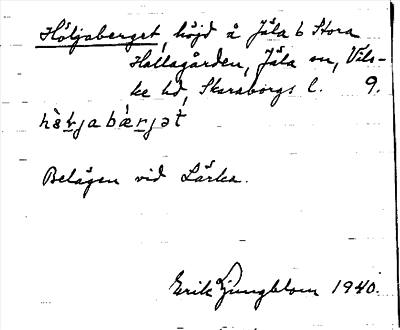 Höljaberget, höjd å Jäla 6 Stora
Hallagården, Jäla sn, Vils-
ke hd, Skaraborgs l. 9.
Belägen vid Lärka.
Erik Ljungblom 1940.